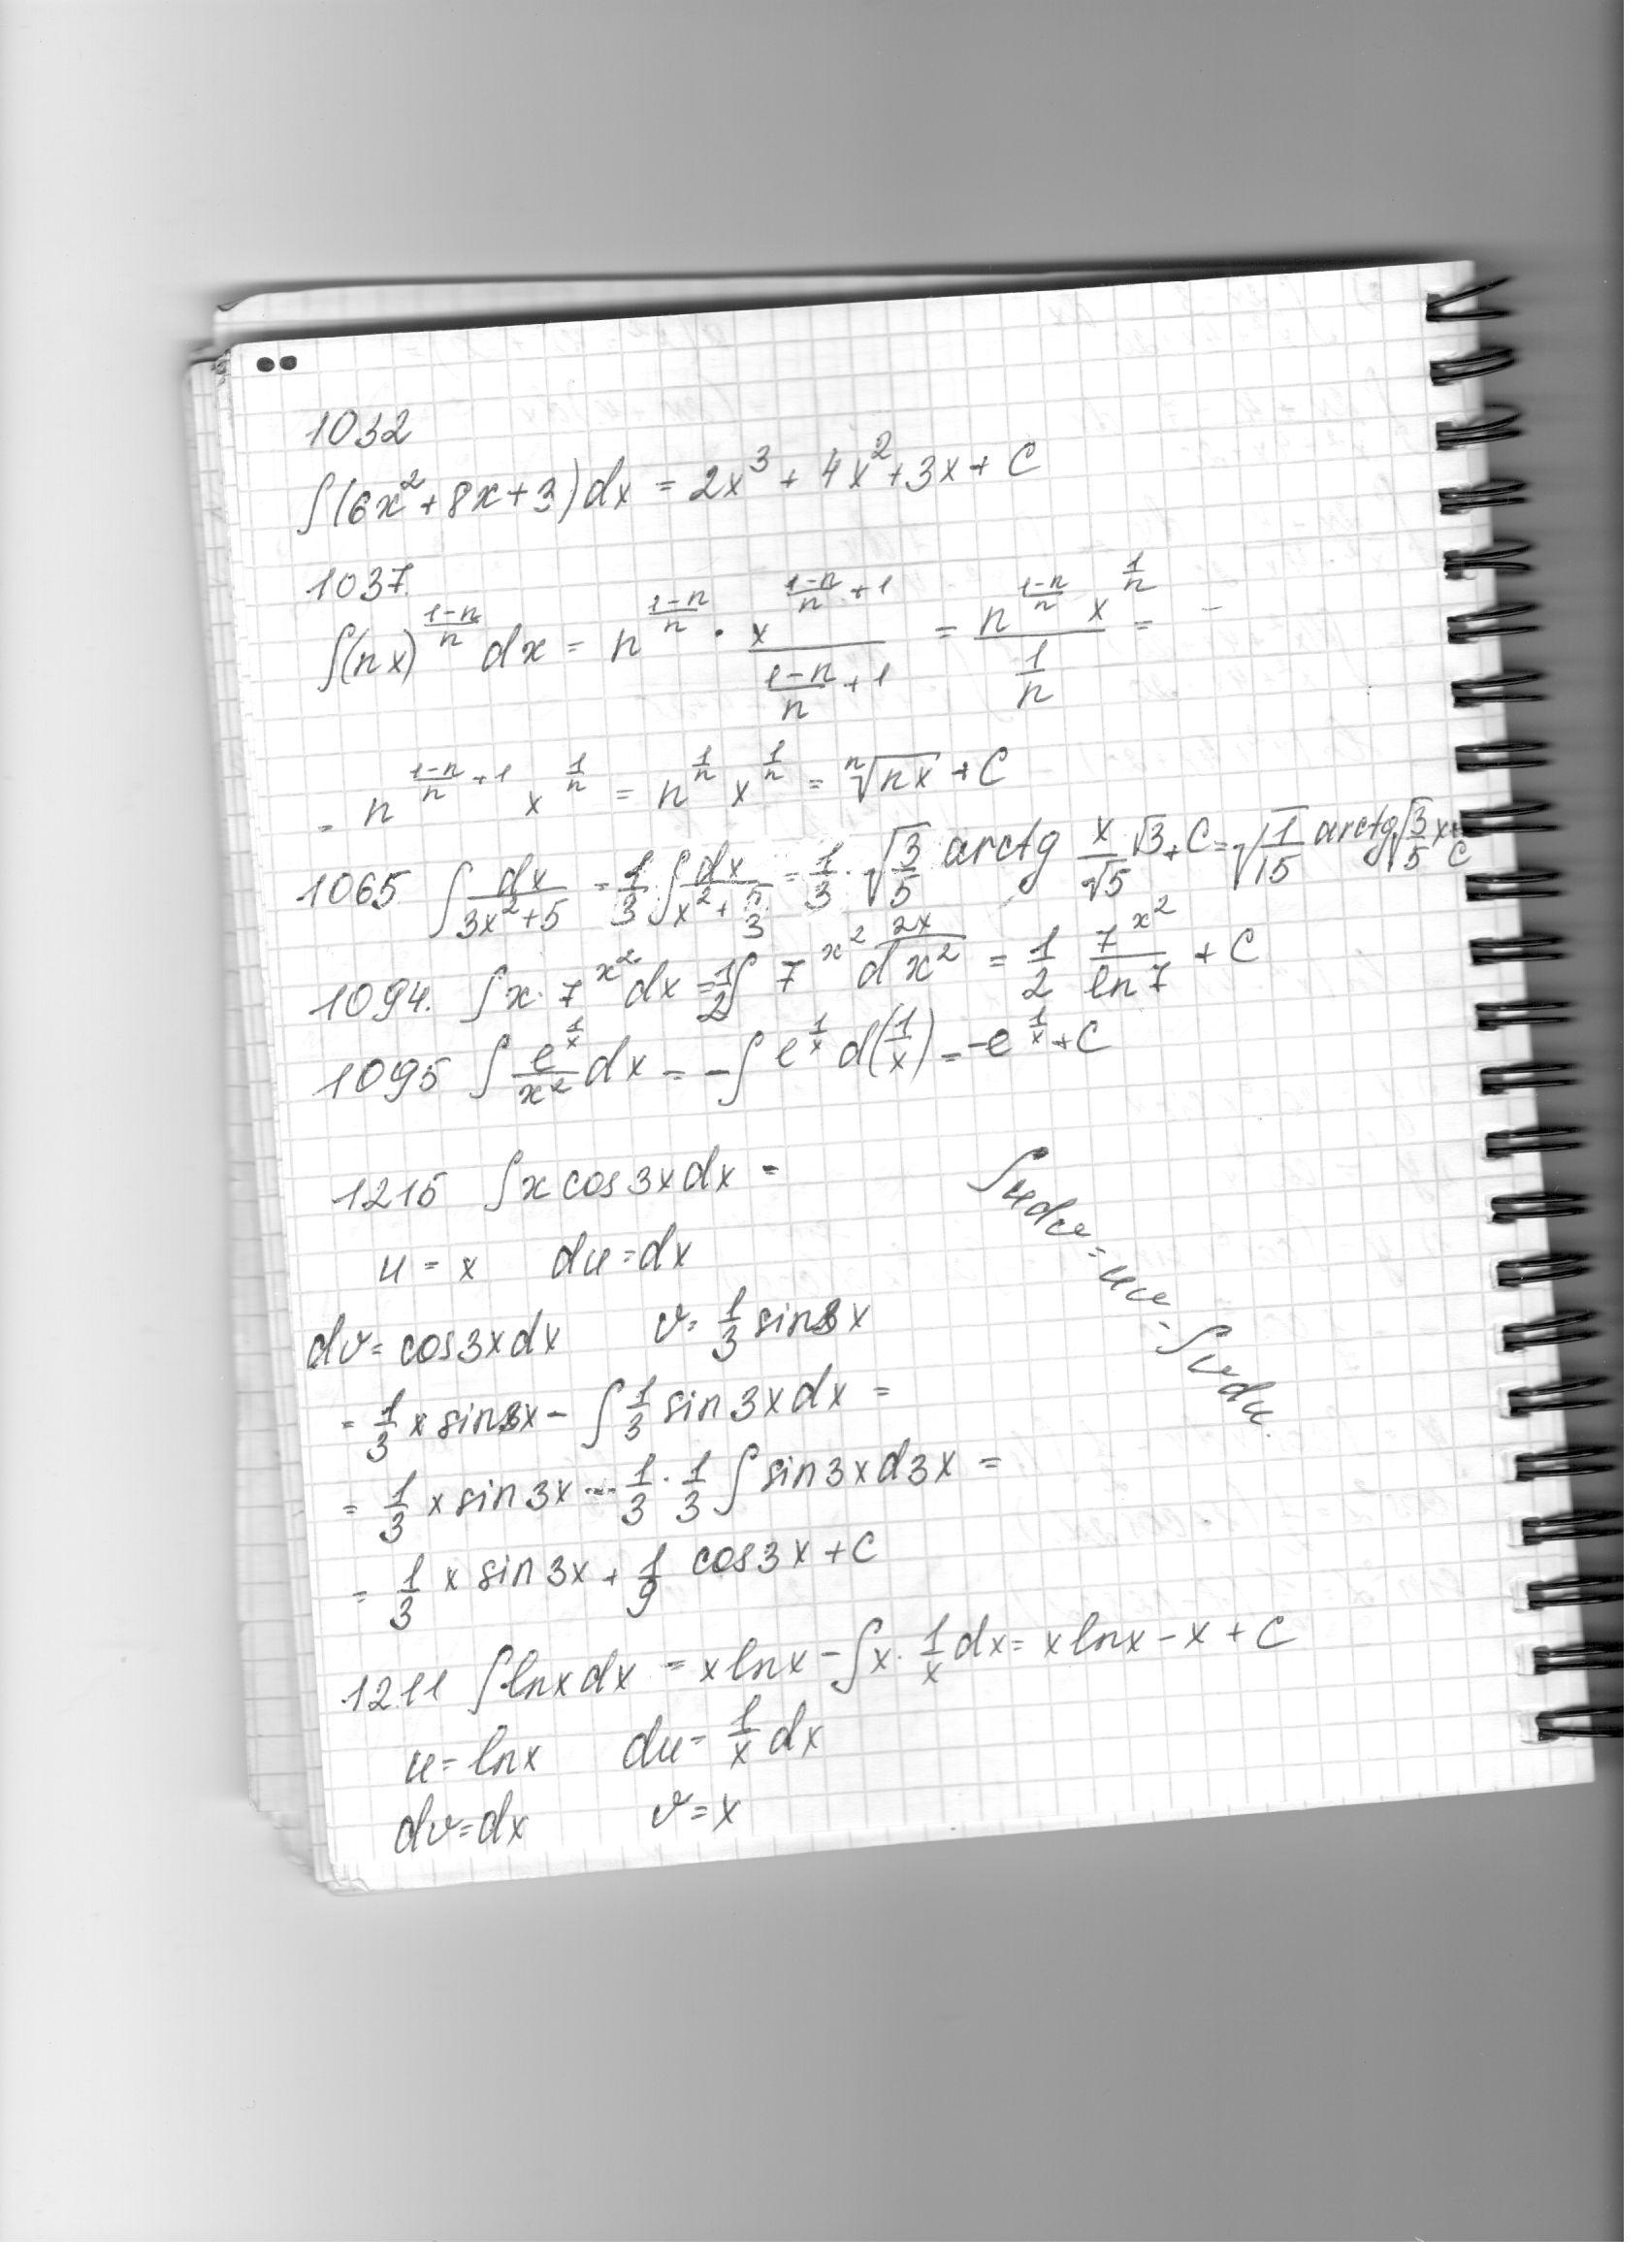 1032
∫(6x²+8x+3)dx = 2x³ + 4x² + 3x + C
1037.
∫(nx)^{\frac{1-n}{n}} dx = n^{\frac{1-n}{n}} · \frac{x^{\frac{1-n}{n}+1}}{\frac{1-n}{n}+1} = \frac{n^{\frac{1-n}{n}} x^{\frac{1}{n}}}{\frac{1}{n}} =
= n^{\frac{1-n}{n}+1} x^{\frac{1}{n}} = n^{\frac{1}{n}} x^{\frac{1}{n}} = \sqrt[n]{nx} + C
1065 ∫\frac{dx}{3x²+5} = \frac{1}{3} ∫\frac{dx}{x²+\frac{5}{3}} = \frac{1}{3} · \sqrt{\frac{3}{5}} arctg \frac{x}{\sqrt{5}} \sqrt{3} + C = \sqrt{\frac{1}{15}} arctg \sqrt{\frac{3}{5}} x + C
1094. ∫x · 7^{x²} dx = \frac{1}{2} ∫ 7^{x²} \frac{2x}{dx²} = \frac{1}{2} \frac{7^{x²}}{ln 7} + C
1095 ∫\frac{e^{\frac{1}{x}}}{x²} dx = -∫ e^{\frac{1}{x}} d(\frac{1}{x}) = -e^{\frac{1}{x}} + C
1215 ∫x cos 3x dx =
∫udv = uv - ∫vdu.
u = x du = dx
dv = cos 3x dx v = \frac{1}{3} sin 3x
= \frac{1}{3} x sin 3x - ∫\frac{1}{3} sin 3x dx =
= \frac{1}{3} x sin 3x - \frac{1}{3} · \frac{1}{3} ∫ sin 3x d3x =
= \frac{1}{3} x sin 3x + \frac{1}{9} cos 3x + C
1211 ∫ln x dx = x ln x - ∫x · \frac{1}{x} dx = x ln x - x + C
u = ln x du = \frac{1}{x} dx
dv = dx v = x